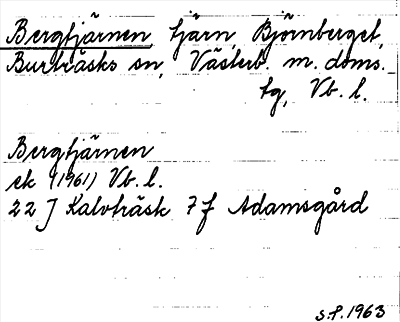 Bergtjärnen tjärn, Björnberget,
Burträsks sn, Västerb. m. doms.
tg, Vb. l.
Bergtjärnen
ek (1961) Vb. l.
22 J Kalvträsk 7 f Adamsgård
S.P. 1963